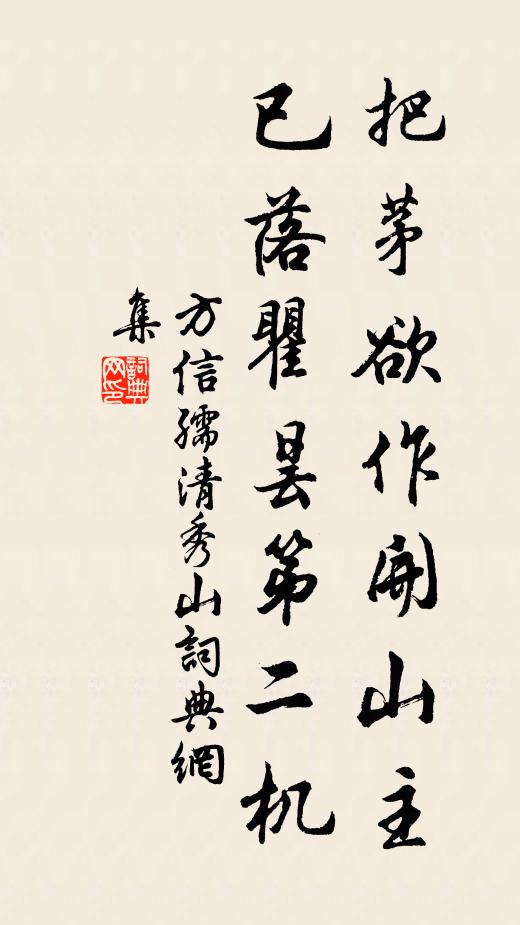 把茅欲作開山主
已落瞿曇第二机
方信孺清秀山詞典網
集
詞典网印